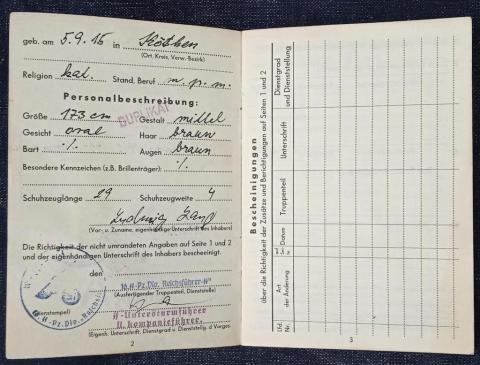 geb. am 5.9.15 in Köthen
(Ort, Kreis, Verw.-Bezirk)
Religion kat. Stand, Beruf m. p. m.
Personalbeschreibung:
DUPLIKAT
Größe 173 cm Gestalt mittel
Gesicht oval Haar braun
Bart ·/. Augen braun
Besondere Kennzeichen (z.B. Brillenträger):
·/.
Schuhzeuglänge 29 Schuhzeugweite 4
Ludwig
(Vor- u. Zuname, eigenhändige Unterschrift des Inhabers)
Die Richtigkeit der nicht umrandeten Angaben auf Seite 1 und 2
und der eigenhändigen Unterschrift des Inhabers bescheinigt.
den
16.SS-Pz.Div. Reichsführer-SS
(Ausfertigender Truppenteil, Dienststelle)
16.SS-Pz.Div.
(Dienststempel)
SS-Untersturmführer
U. Kompanieführer.
(Eigenh. Unterschrift, Dienstgrad u. Dienststellg. d. Vorges.)
2
Bescheinigungen
über die Richtigkeit der Zusätze und Berichtigungen auf Seiten 1 und 2
Lfd. Nr.
Art der Änderung
Datum
Truppenteil
Unterschrift
Dienstgrad und Dienststellung
3